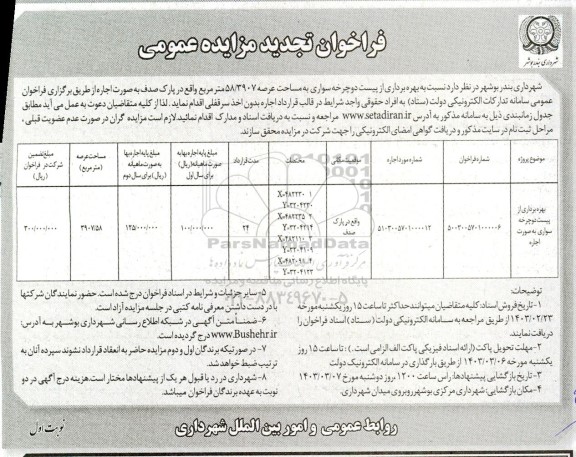 فراخوان تجدید مزایده عمومی
شهرداری بندر بوشهر
شهرداری بندر بوشهر در نظر دارد نسبت به بهره برداری از پیست دوچرخه سواری به مساحت عرصه ۵۸/۳۹۰۷ متر مربع واقع در پارک صدف به صورت اجاره از طریق برگزاری فراخوان
عمومی سامانه تدارکات الکترونیکی دولت (ستاد) به افراد حقوقی واجد شرایط در قالب قرارداد اجاره بدون اخذ سرقفلی اقدام نماید. لذا از کلیه متقاضیان دعوت به عمل می آید مطابق
جدول زمانبندی ذیل به سامانه مذکور به آدرس www.setadiran.ir مراجعه و نسبت به دریافت اسناد و مدارک اقدام نمائید. لازم است مزایده گران در صورت عدم عضویت قبلی،
مراحل ثبت نام در سایت مذکور و دریافت گواهی امضای الکترونیکی را جهت شرکت در مزایده محقق سازند.
موضوع پروژه شماره فراخوان شماره مورد اجاره موقعیت مکانی مختصات مدت قرارداد مبلغ پایه اجاره بها به صورت ماهیانه (ریال) برای سال اول مبلغ پایه اجاره بها به صورت ماهیانه (ریال) برای سال دوم مساحت عرصه (متر مربع) مبلغ تضمین شرکت در فراخوان (ریال)
بهره برداری از پیست دوچرخه سواری به صورت اجاره ۵۰۰۳۰۰۵۷۰۱۰۰۰۰۰۶ ۵۱۰۳۰۰۵۷۰۱۰۰۰۰۱۲ واقع در پارک صدف
۲۴ ۱۰۰/۰۰۰/۰۰۰ ۱۲۵/۰۰۰/۰۰۰ ۳۹۰۷/۵۸ ۳۰۰/۰۰۰/۰۰۰
ParsNamadData
توضیحات:
۱-تاریخ فروش اسناد: کلیه متقاضیان میتوانند حداکثر تا ساعت ۱۵ روز یکشنبه مورخه
۱۴۰۳/۰۲/۲۳ از طریق مراجعه به سامانه الکترونیکی دولت (ستاد) اسناد فراخوان را
دریافت نمایند.
۲-مهلت تحویل پاکت (ارائه اسناد فیزیکی پاکت الف الزامی است.): تا ساعت ۱۵ روز
یکشنبه مورخه ۱۴۰۳/۰۳/۰۶ از طریق بارگذاری در سامانه الکترونیک دولت
۳-تاریخ بازگشایی پیشنهادها: راس ساعت ۱۲:۰۰، روز دوشنبه مورخ ۱۴۰۳/۰۳/۰۷
۴-مکان بازگشایی: شهرداری مرکزی بوشهر روبروی میدان شهرداری.
۵-سایر جزئیات و شرایط در اسناد فراخوان درج شده است. حضور نمایندگان شرکتها
با در دست داشتن معرفی نامه کتبی در جلسه مزایده آزاد است.
۶-ضمناً متن آگهی در شبکه اطلاع رسانی شهرداری بوشهر به آدرس:
www.Bushehr.ir درج گردیده است.
۷-در صورتیکه برندگان اول و دوم مزایده حاضر به انعقاد قرارداد نشوند سپرده آنان به
ترتیب ضبط خواهد شد.
۸-شهرداری در رد یا قبول هر یک از پیشنهادها مختار است. هزینه درج آگهی در دو
نوبت به عهده برندگان فراخوان میباشد.
روابط عمومی و امور بین الملل شهرداری
نوبت اول